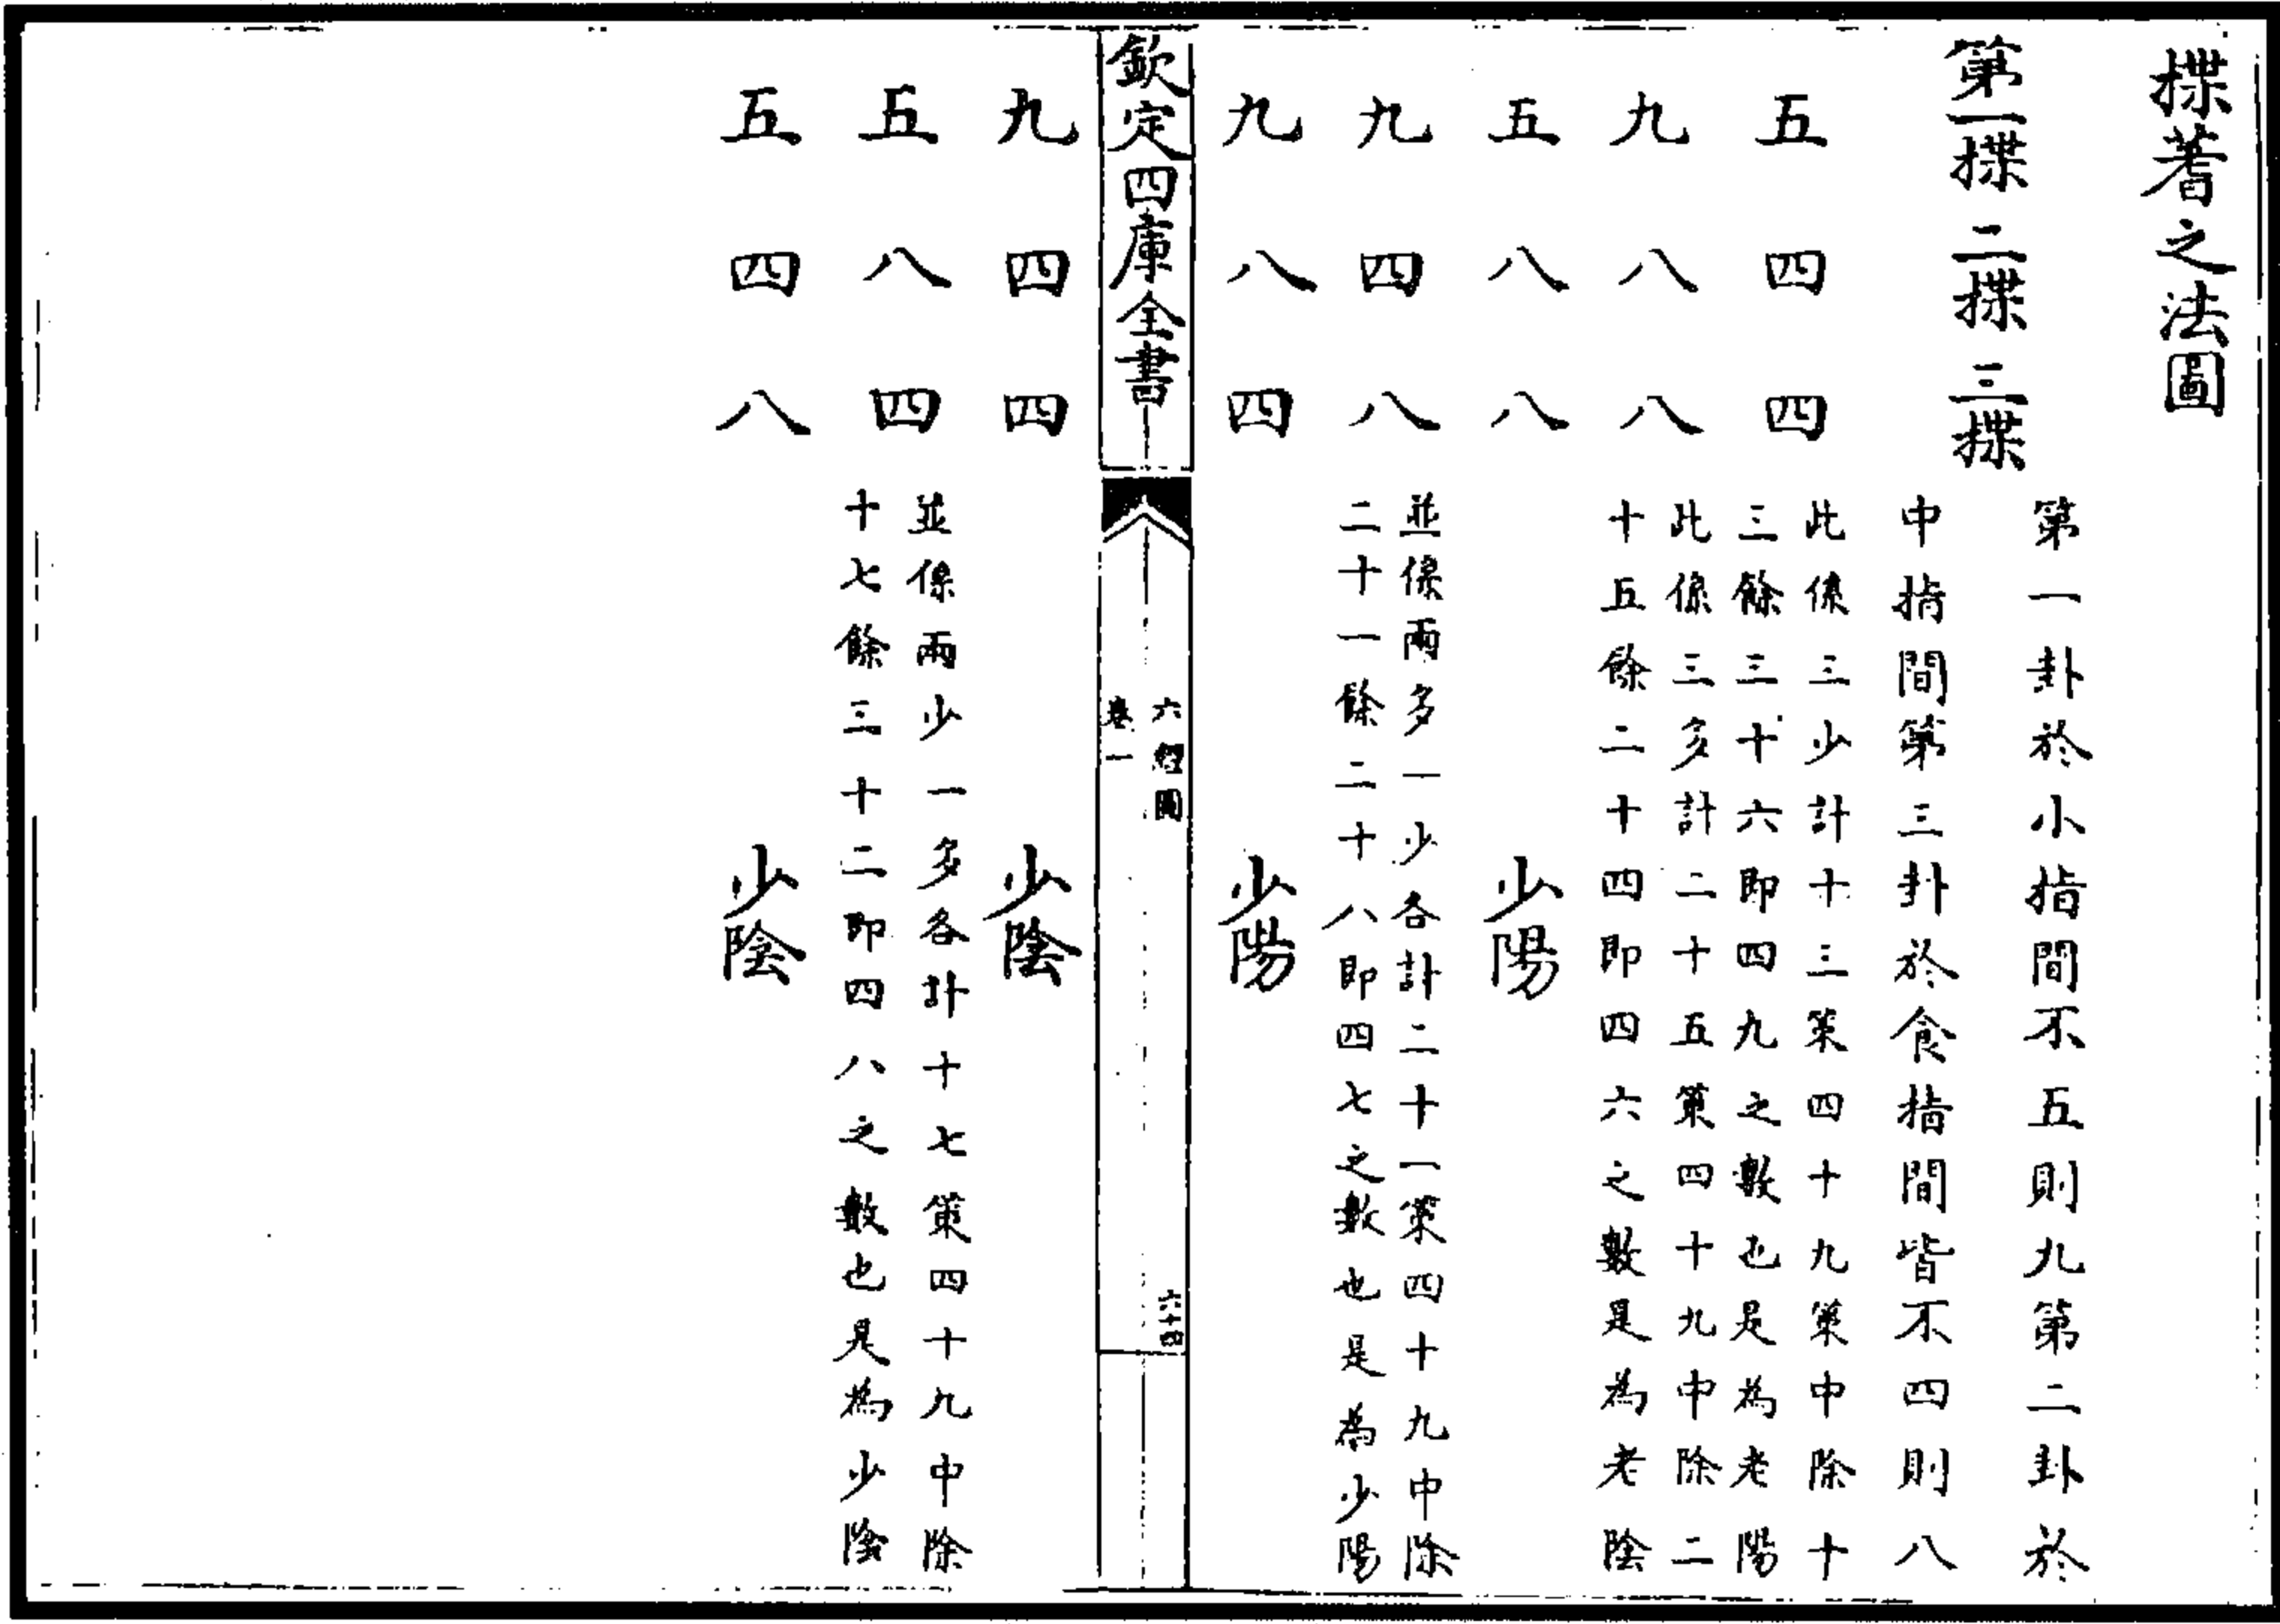 揲蓍之法圖
第一揲 二揲 三揲
第一卦於小指間不五則九第二卦於
中指間第三卦於食指指間皆不四則八
五 四 四
此係三少計十三策四十九策中除十
三餘三十六即四九之數也是為老陽
九 八 八
此係三多計二十五策四十九中除二
十五餘二十四即四六之數是為老陰
五 八 八 少陽
九 四 八
並係兩多一少各計二十一策四十九中除
二十一餘二十八即四七之數也是為少陽
九 八 四 少陽
欽定四庫全書
六經圖
卷一
六十四
九 四 四 少陰
五 八 四
並係兩少一多各計十七策四十九中除
十七餘三十二即四八之數也是為少陰
五 四 八 少陰